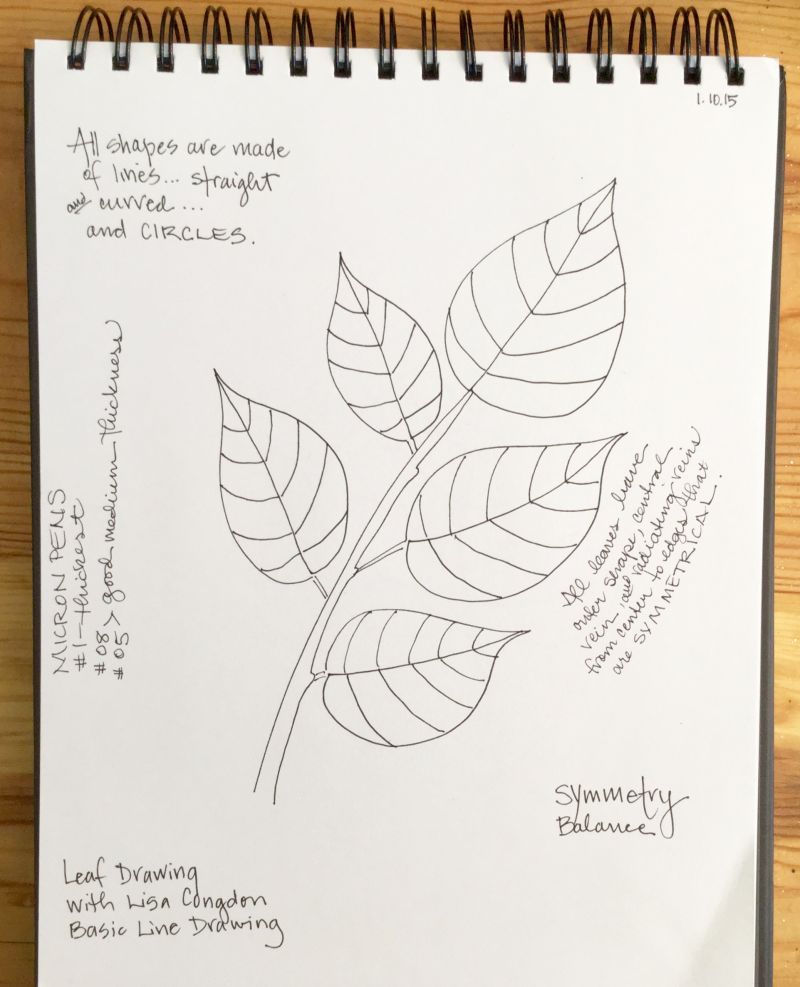 1.10.15
All shapes are made
of lines... straight
and curved...
and CIRCLES.
MICRON PENS
#1 - thickest
#08 > good medium thickness
#05
All leaves have
outer shape, central
vein, and radiating veins
from center to edges that
are SYMMETRICAL.
Symmetry
Balance
Leaf Drawing
with Lisa Congdon
Basic Line Drawing